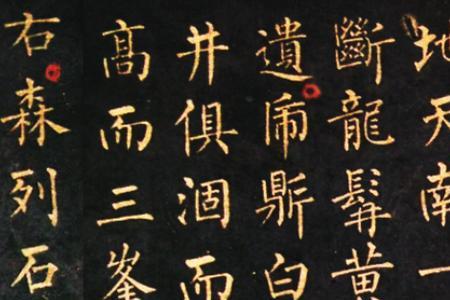 地天南一
斷龍髯黃
遺白
井俱涸而
高而三峯
右森列石